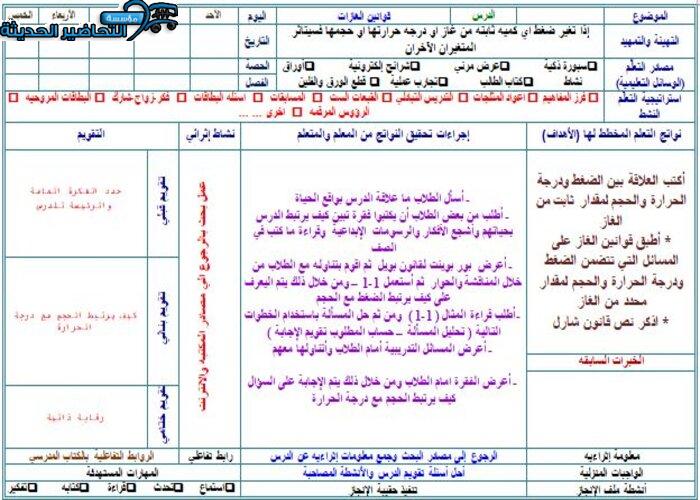 مؤسسة
التحاضير الحديثة
الموضوع
الدرس
قوانين الغازات
اليوم
الأحد
الأربعاء
الخميس
التهيئة والتمهيد
إذا تغير ضغط اي كميه ثابته من غاز او درجه حرارتها او حجمها فسيتاثر
المتغيران الأخران
التاريخ
مصادر التعلم
(الوسائل التعليمية)
سبورة ذكية
عرض مرئي
شرائح إلكترونية
أوراق
نشاط
كتاب الطالب
تجارب عملية
قطع الورق والفلين
الحصة
الفصل
استراتيجية التعلم
النشط
فرز المفاهيم
اعواد المثلجات
التدريس التبادلي
القبعات الست
المسابقات
اسئله البطاقات
فكر-زواج-شارك
البطاقات المروحيه
الرؤوس المرقمه
اخرى ... ...
نواتج التعلم المخطط لها (الأهداف)
إجراءات تحقيق النواتج من المعلم والمتعلم
نشاط إثرائي
التقويم
أكتب العلاقة بين الضغط ودرجة
الحرارة والحجم لمقدار ثابت من
الغاز
* أطبق قوانين الغاز على
المسائل التي تتضمن الضغط
ودرجة الحرارة والحجم لمقدار
محدد من الغاز
* اذكر نص قانون شارل
الخبرات السابقه
- أسأل الطلاب ما علاقة الدرس بواقع الحياة
- أطلب من بعض الطلاب أن يكتبوا فقرة تبين كيف يرتبط الدرس
بحياتهم وأشجع الأفكار والرسومات الإبداعية وقراءة ما كتب في
الصف
- أعرض بور بوينت لقانون بويل ثم اقوم بتناوله مع الطلاب من
خلال المناقشة والحوار ثم أستعمل 1-1 – ومن خلال ذلك يتم اليعرف
على كيف يرتبط الضغط مع الحجم
- أطلب قراءة المثال (1-1) ومن ثم حل المسألة باستخدام الخطوات
التالية ( تحليل المسألة – حساب المطلوب تقويم الإجابة )
- أعرض المسائل التدريبية أمام الطلاب وأتناولها معهم
- أعرض الفقرة امام الطلاب ومن خلال ذلك يتم الإجابة على السؤال
كيف يرتبط الحجم مع درجة الحرارة
عمل بحث بالرجوع الي مصادر المكتبه والانترنت
تقويم قبلي
حدد الفكرة العامة
والرئيسة للدرس
تقويم بنائي
كيف يرتبط الحجم مع درجة
الحرارة
تقويم ختامي
رقابة ذاتية
معلومة إثرائيه
الرجوع إلى مصادر البحث وجمع معلومات إثراءيه عن الدرس
رابط تفاعلي
الروابط التفاعلية بالكتاب المدرسي
الواجبات المنزلية
أحل أسئلة تقويم الدرس والأنشطة المصاحبة
المهارات المستهدفة
أنشطة ملف الإنجاز
تنفيذ حقيبة الإنجاز
استماع
تحدث
قراءة
كتابه
تفكير